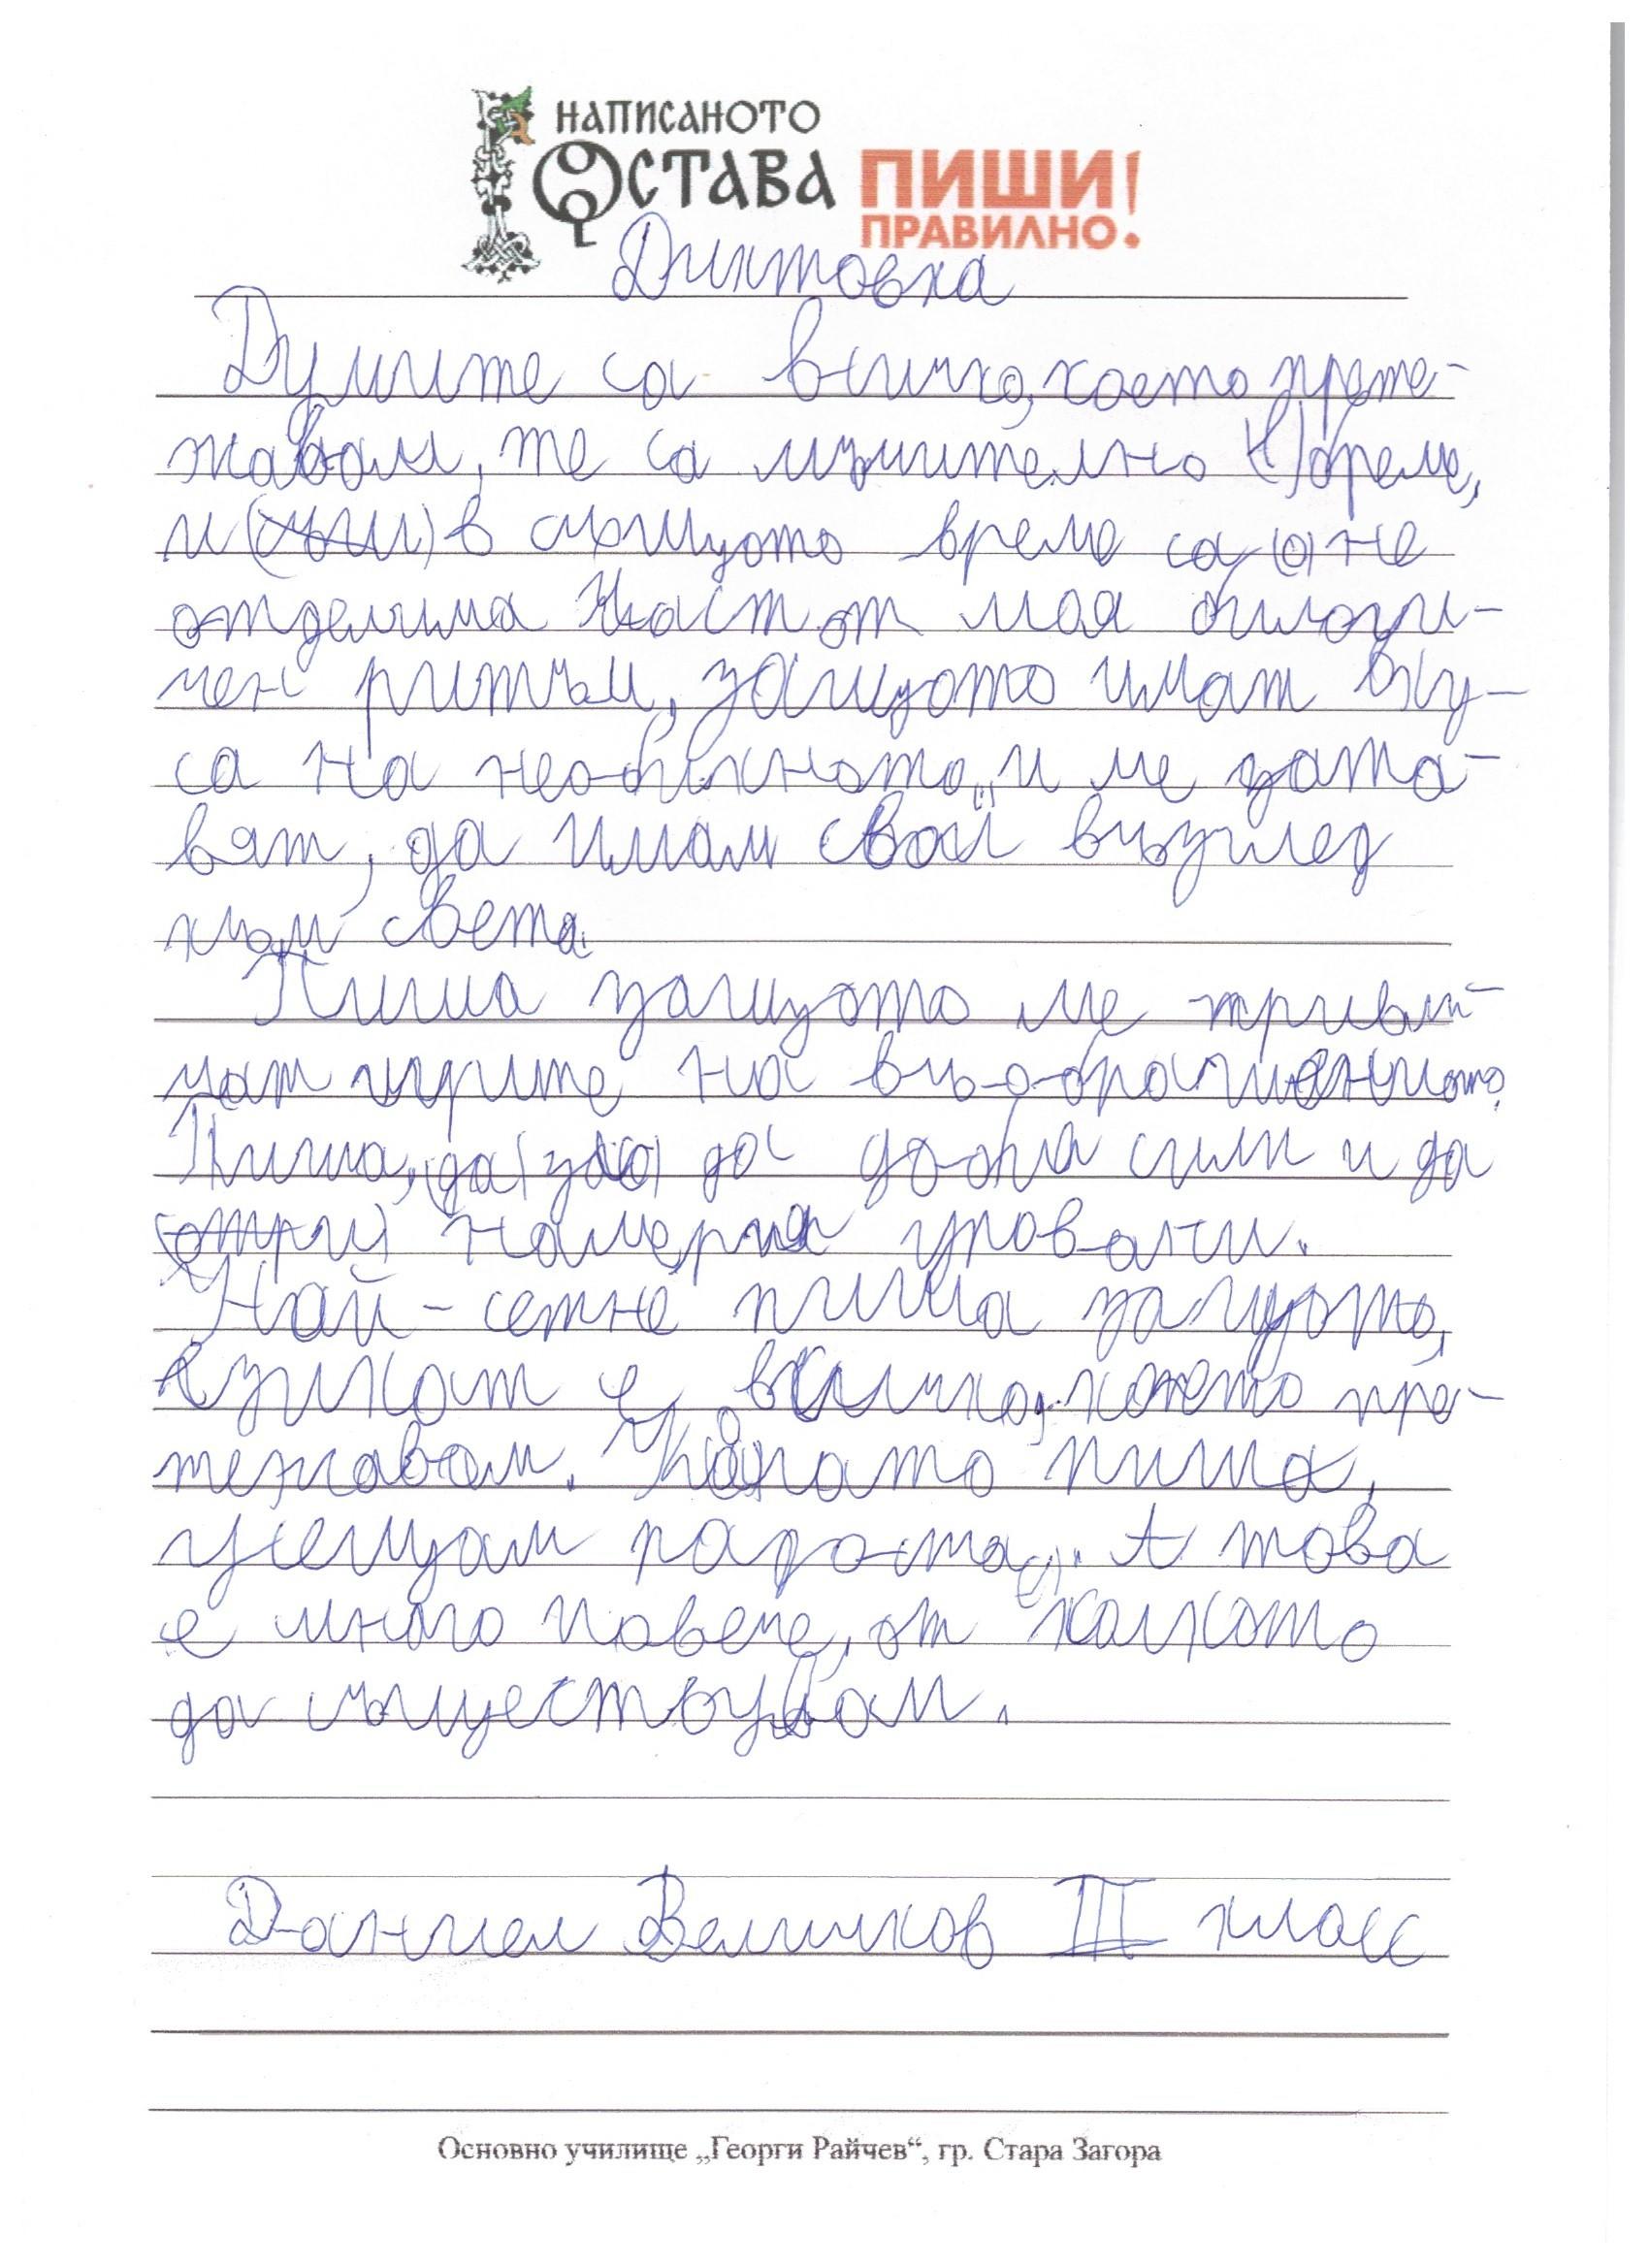 НАПИСАНОТО
ОСТАВА ПИШИ
ПРАВИЛНО!
Диктовка
Думите са всичко, което прете-
жавам, те са мъчително бреме,
и в същото време са не
отделима част от моя биологи-
чен ритъм, защото имат вку-
са на необятното, и ме заста-
вят, да имам свой възглед
към света.
Пиша защото ме привли-
чат игрите на въображението.
Пиша, да добия сили и да
намеря упование.
Най-сетне пиша защото,
езикът е всичко, което при-
тежавам. Когато пиша,
усещам радоста. А това
е много повече, от колкото
да съществувам.
Даниел Величков III клас
Основно училище „Георги Райчев“, гр. Стара Загора